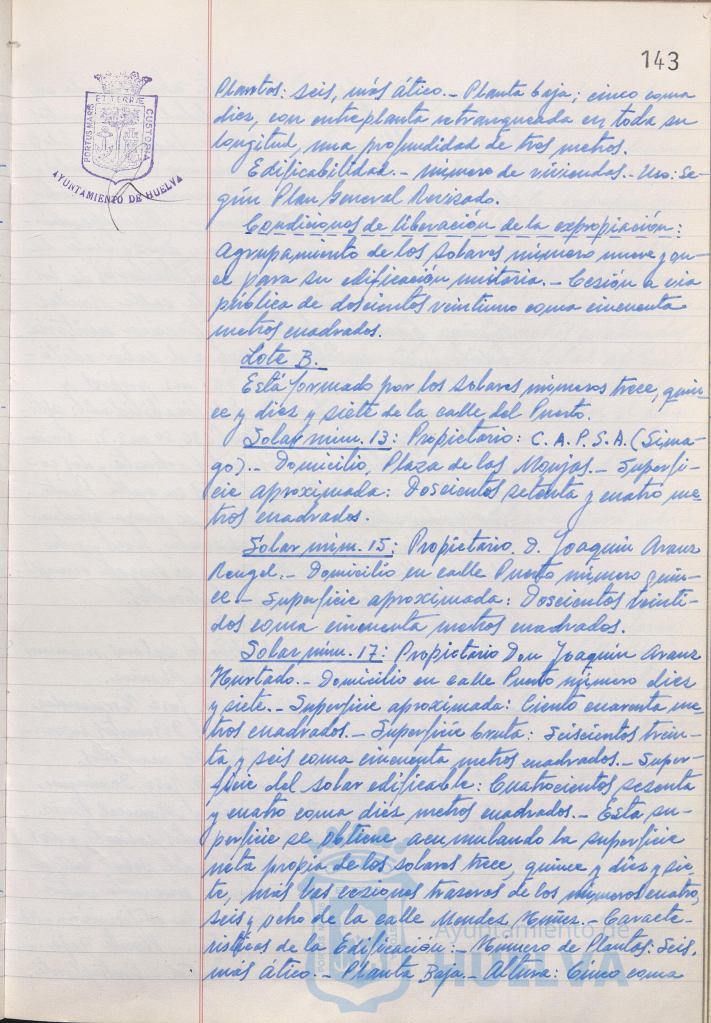 143
PORTUS MARIS ET TERRAE CUSTODIA
AYUNTAMIENTO DE HUELVA
Plantas: seis, más ático.- Planta baja; cinco coma
diez, con entreplanta retranqueada en toda su
longitud, una profundidad de tres metros.
Edificabilidad.- número de viviendas.- Uso: Se-
gún Plan General Revisado.
Condiciones de liberación de la expropiación:
Agrupamiento de los solares número nueve y on-
ce para su edificación unitaria.- Cesión a vía
pública de doscientos veintiuno coma cincuenta
metros cuadrados.
Lote B.
Está formado por los solares números trece, quin-
ce y diez y siete de la calle del Puerto.
Solar núm. 13: Propietario: C.A.P.S.A. (Sima-
go).- Domicilio, Plaza de las Monjas.- Superfi-
cie aproximada: Doscientos setenta y cuatro me-
tros cuadrados.
Solar núm. 15: Propietario. D. Joaquín Aranz
Rengel.- Domicilio en calle Puerto número quin-
ce.- Superficie aproximada: Doscientos veinti-
dos coma cincuenta metros cuadrados.
Solar núm. 17: Propietario Don Joaquín Aranz
Hurtado.- Domicilio en calle Puerto número diez
y siete.- Superficie aproximada: Ciento cuarenta me-
tros cuadrados.- Superficie bruta: Seiscientos trein-
ta y seis coma cincuenta metros cuadrados.- Super-
ficie del solar edificable: Cuatrocientos sesenta
y cuatro coma diez metros cuadrados.- Esta su-
perficie se obtiene acumulando la superficie
neta propia de los solares trece, quince y diez y sie-
te, más las cesiones traseras de los números cuatro,
seis y ocho de la calle Mendez Núñez.- Caracte-
rísticas de la Edificación:- Número de Plantas: Seis,
más ático.- Planta Baja.- Altura: Cinco coma
Ayuntamiento de
HUELVA